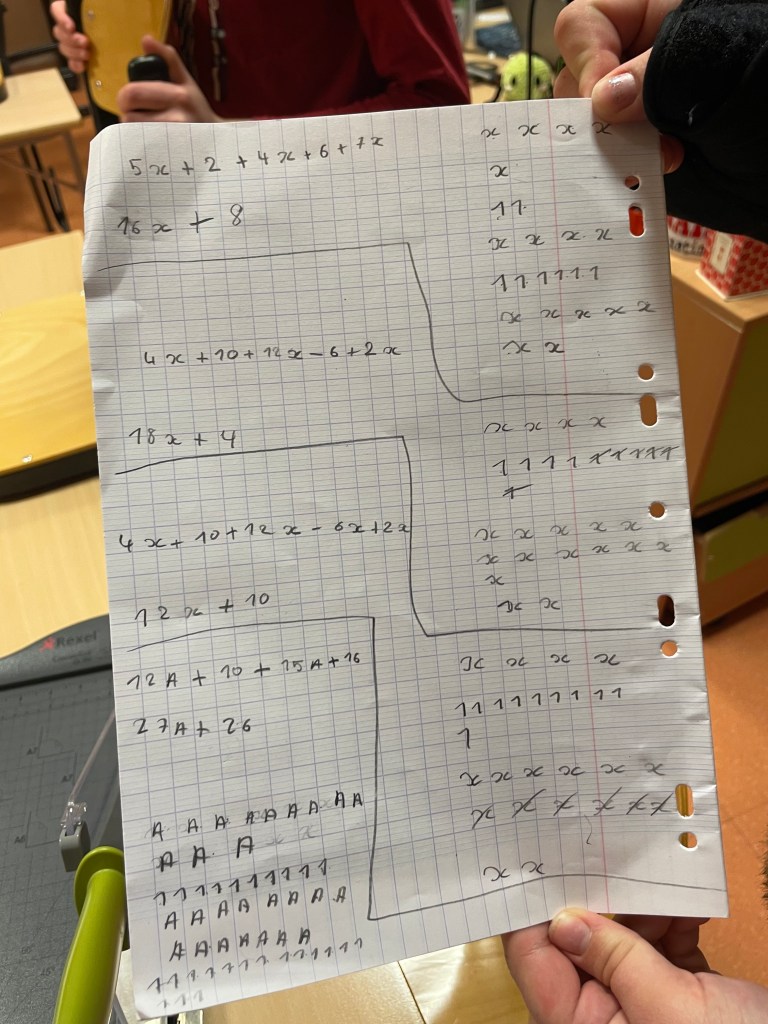 5x + 2 + 4x + 6 + 7x
16x + 8
x x x x
x
1 1
x x x x
1 1 1 1 1 1
x x x x x
x x
4x + 10 + 12x - 6 + 2x
18x + 4
x x x x
1 1 1 1 1 1 1 1 1
1
x x x x x
x x x x x x
x
x x
4x + 10 + 12x - 6x + 2x
12x + 10
x x x x
1 1 1 1 1 1 1 1 1
1
x x x x x x
x x x x x x
x x
12A + 10 + 15A + 16
27A + 26
A A A A A A A A A
A A A
1 1 1 1 1 1 1 1 1 1
A A A A A A A A
A A A A A A A
1 1 1 1 1 1 1 1 1 1 1 1 1
1 1 1
Rexel